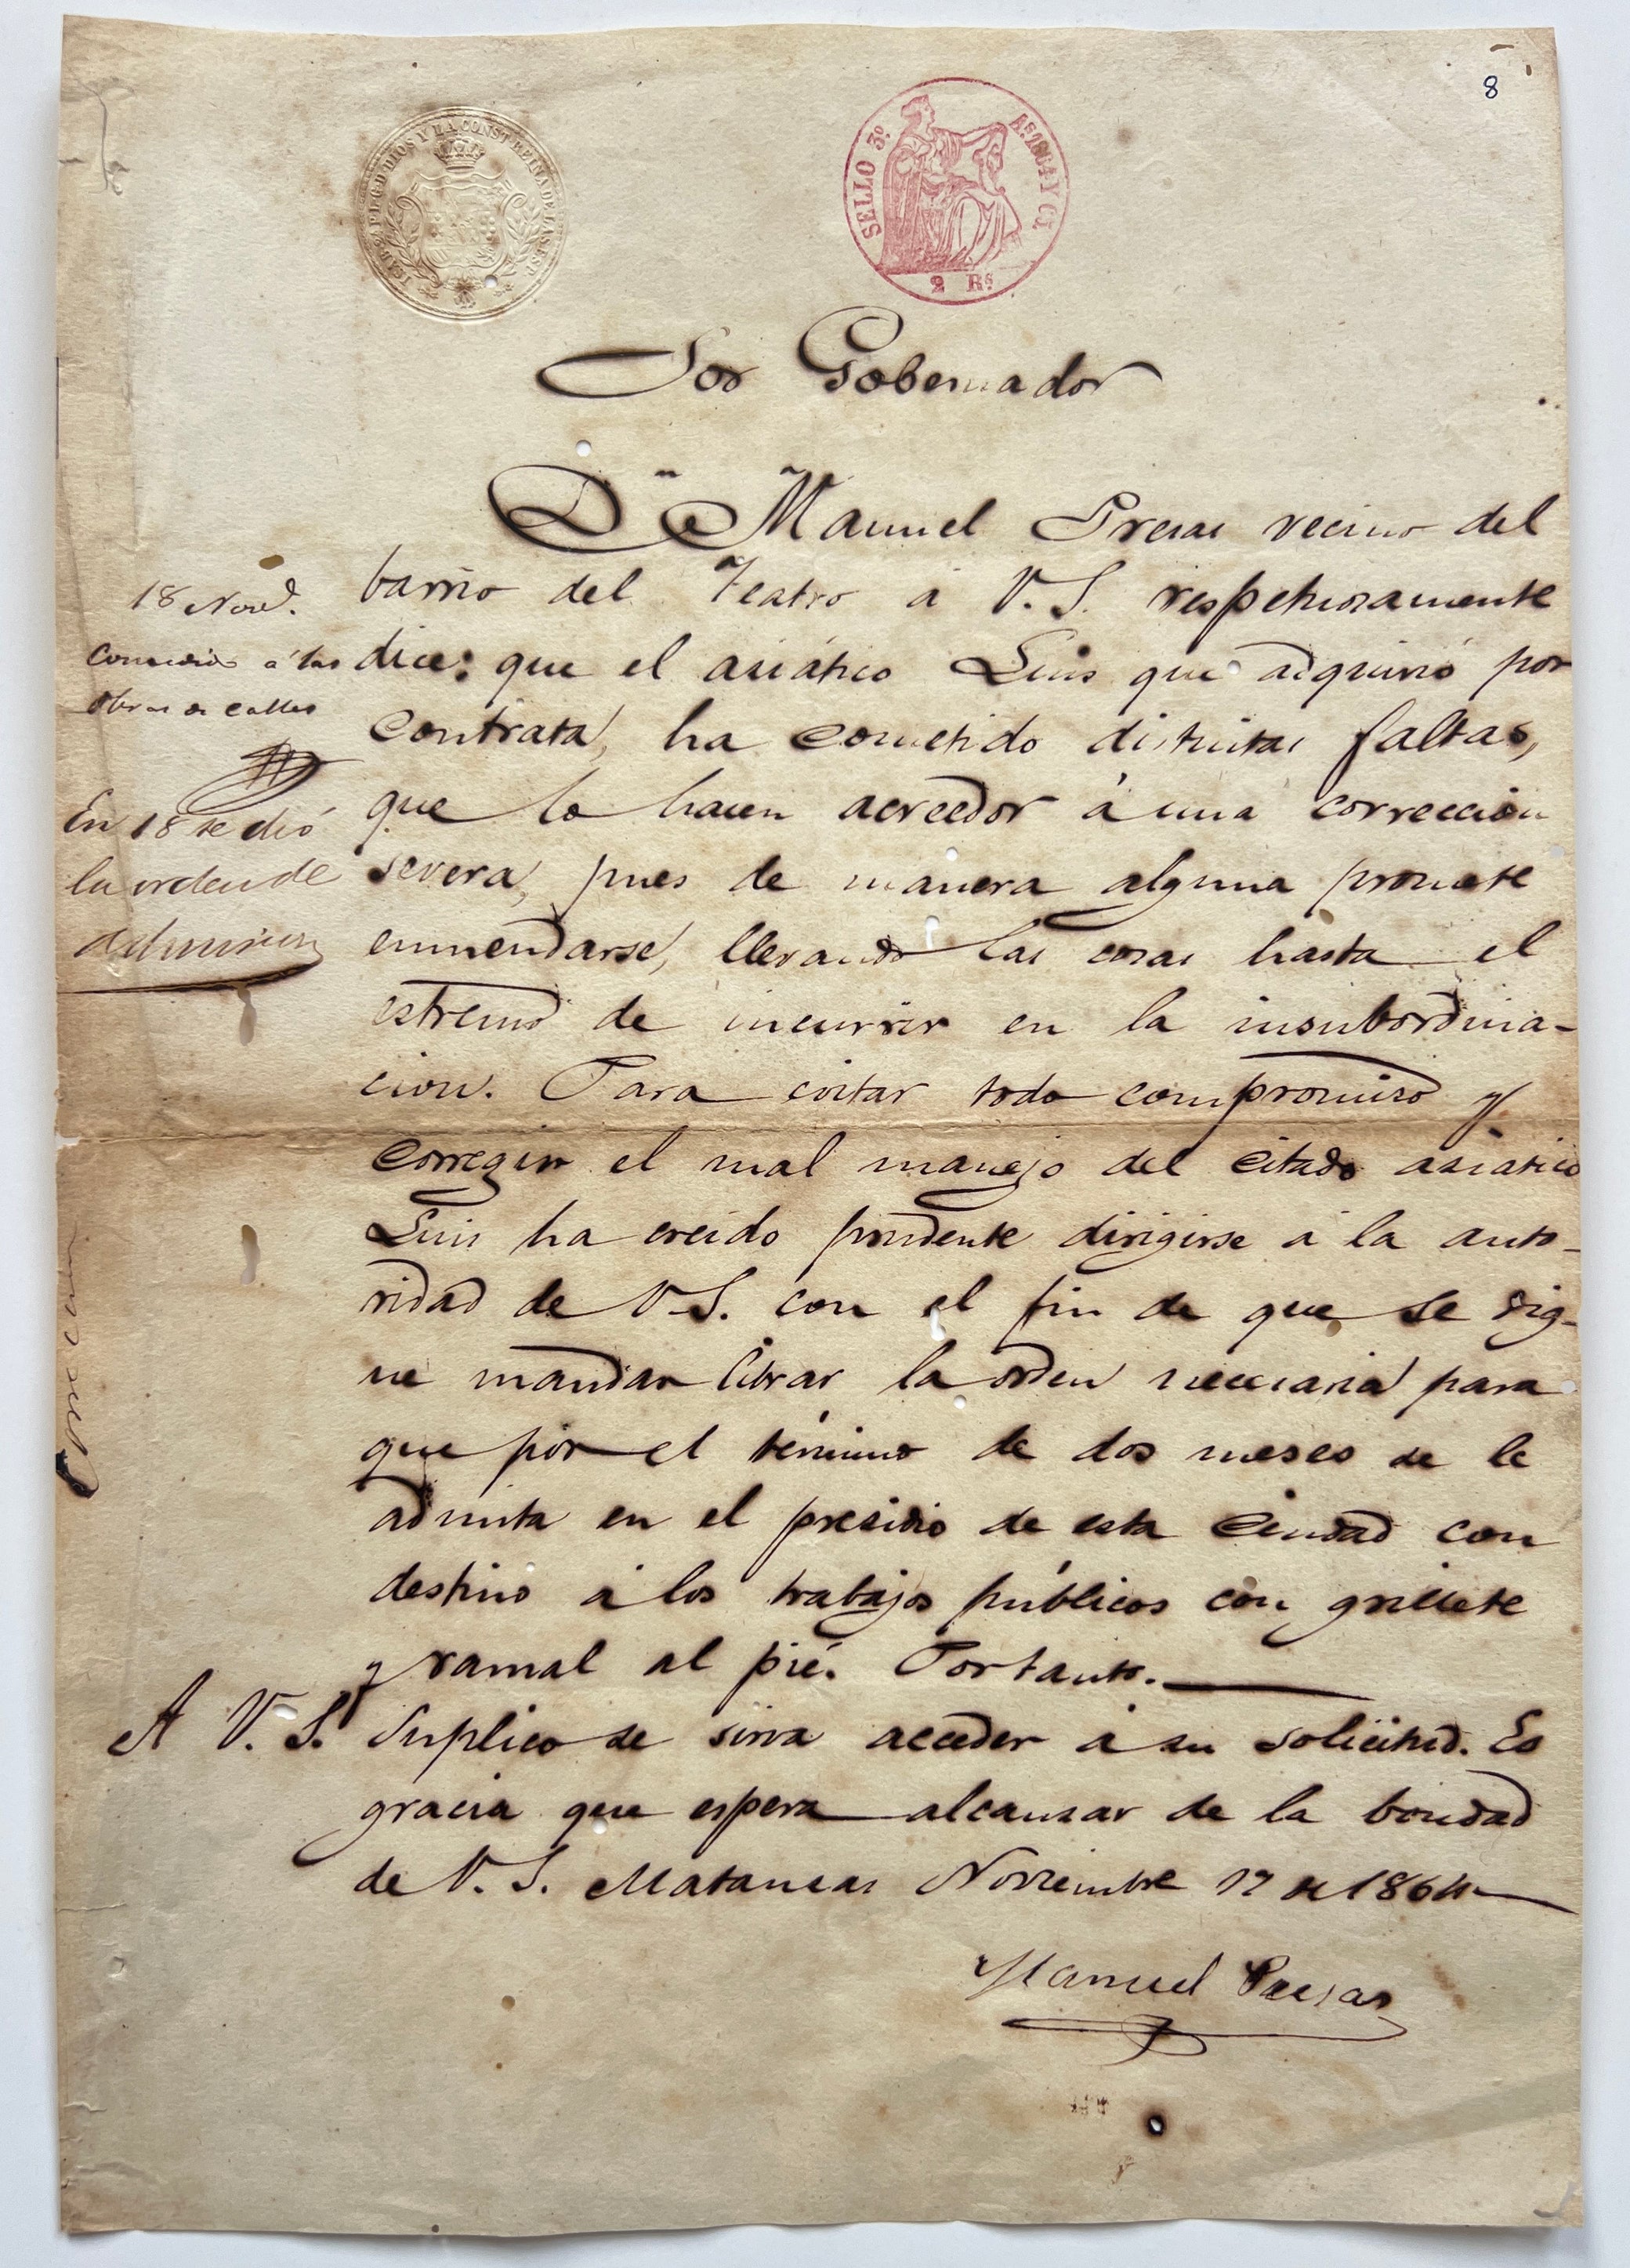 8
ISABEL 2ª P. L. G. D DIOS Y LA CONST. REINA DE LAS ESP.
SELLO 3º Aˢ. 1864 Y 65
2 Rˢ
Sor Gobernador
Dⁿ Manuel Presas vecino del
barrio del Teatro á V. S. respetuosamente
dice: que el asiático Luis que adquirió por
contrata, ha cometido distintas faltas,
que lo hacen acreedor á una correccion
severa, pues de manera alguna promete
enmendarse, llevando las cosas hasta el
estremo de incurrir en la insubordina-
cion. Para evitar todo compromiso y
corregir el mal manejo del citado asiatico
Luis ha creido prudente dirigirse á la auto-
ridad de V. S. con el fin de que se dig-
ne mandar librar la orden necesaria para
que por el término de dos meses se le
admita en el presidio de esta Ciudad con
destino á los trabajos públicos con grillete
y ramal al pié. Por tanto.
A V. S. Suplico se sirva acceder á su solicitud. Es
gracia que espera alcanzar de la bondad
de V. S. Matanzas Noviembre 17 de 1864
Manuel Presas
18 Nove.
Concedido á las
obras de calles
En 18 se dió
la orden de
admision